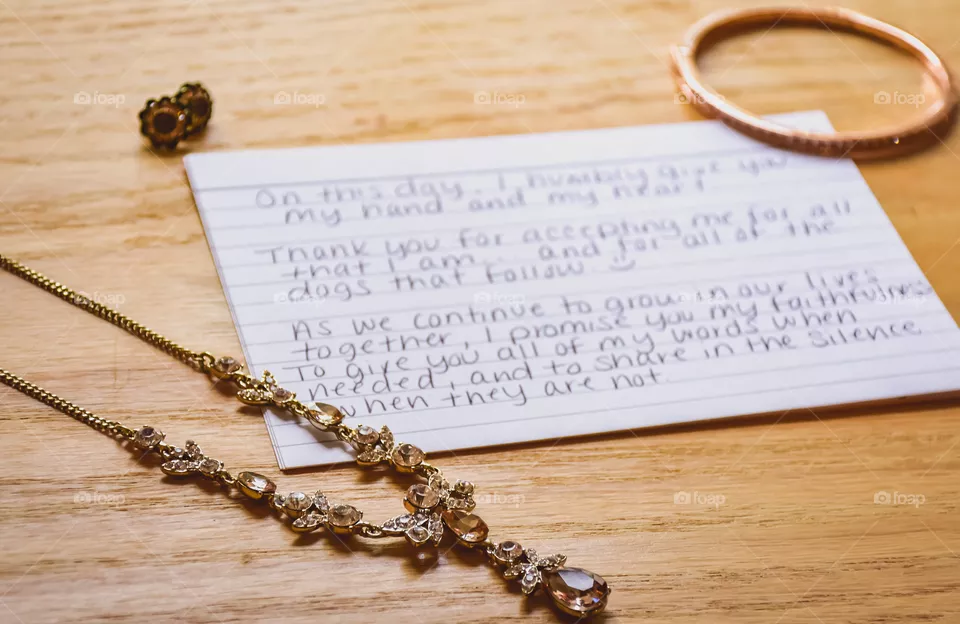 On this day, I humbly give you
my hand and my heart
Thank you for accepting me for all
that I am... and for all of the
dogs that follow.
As we continue to grow in our lives
together, I promise you my faithfulness
To give you all of my words when
needed, and to share in the silence
when they are not.
foap
foap
foap
foap
foap
foap
foap
foap
foap
foap
foap
foap
foap
foap